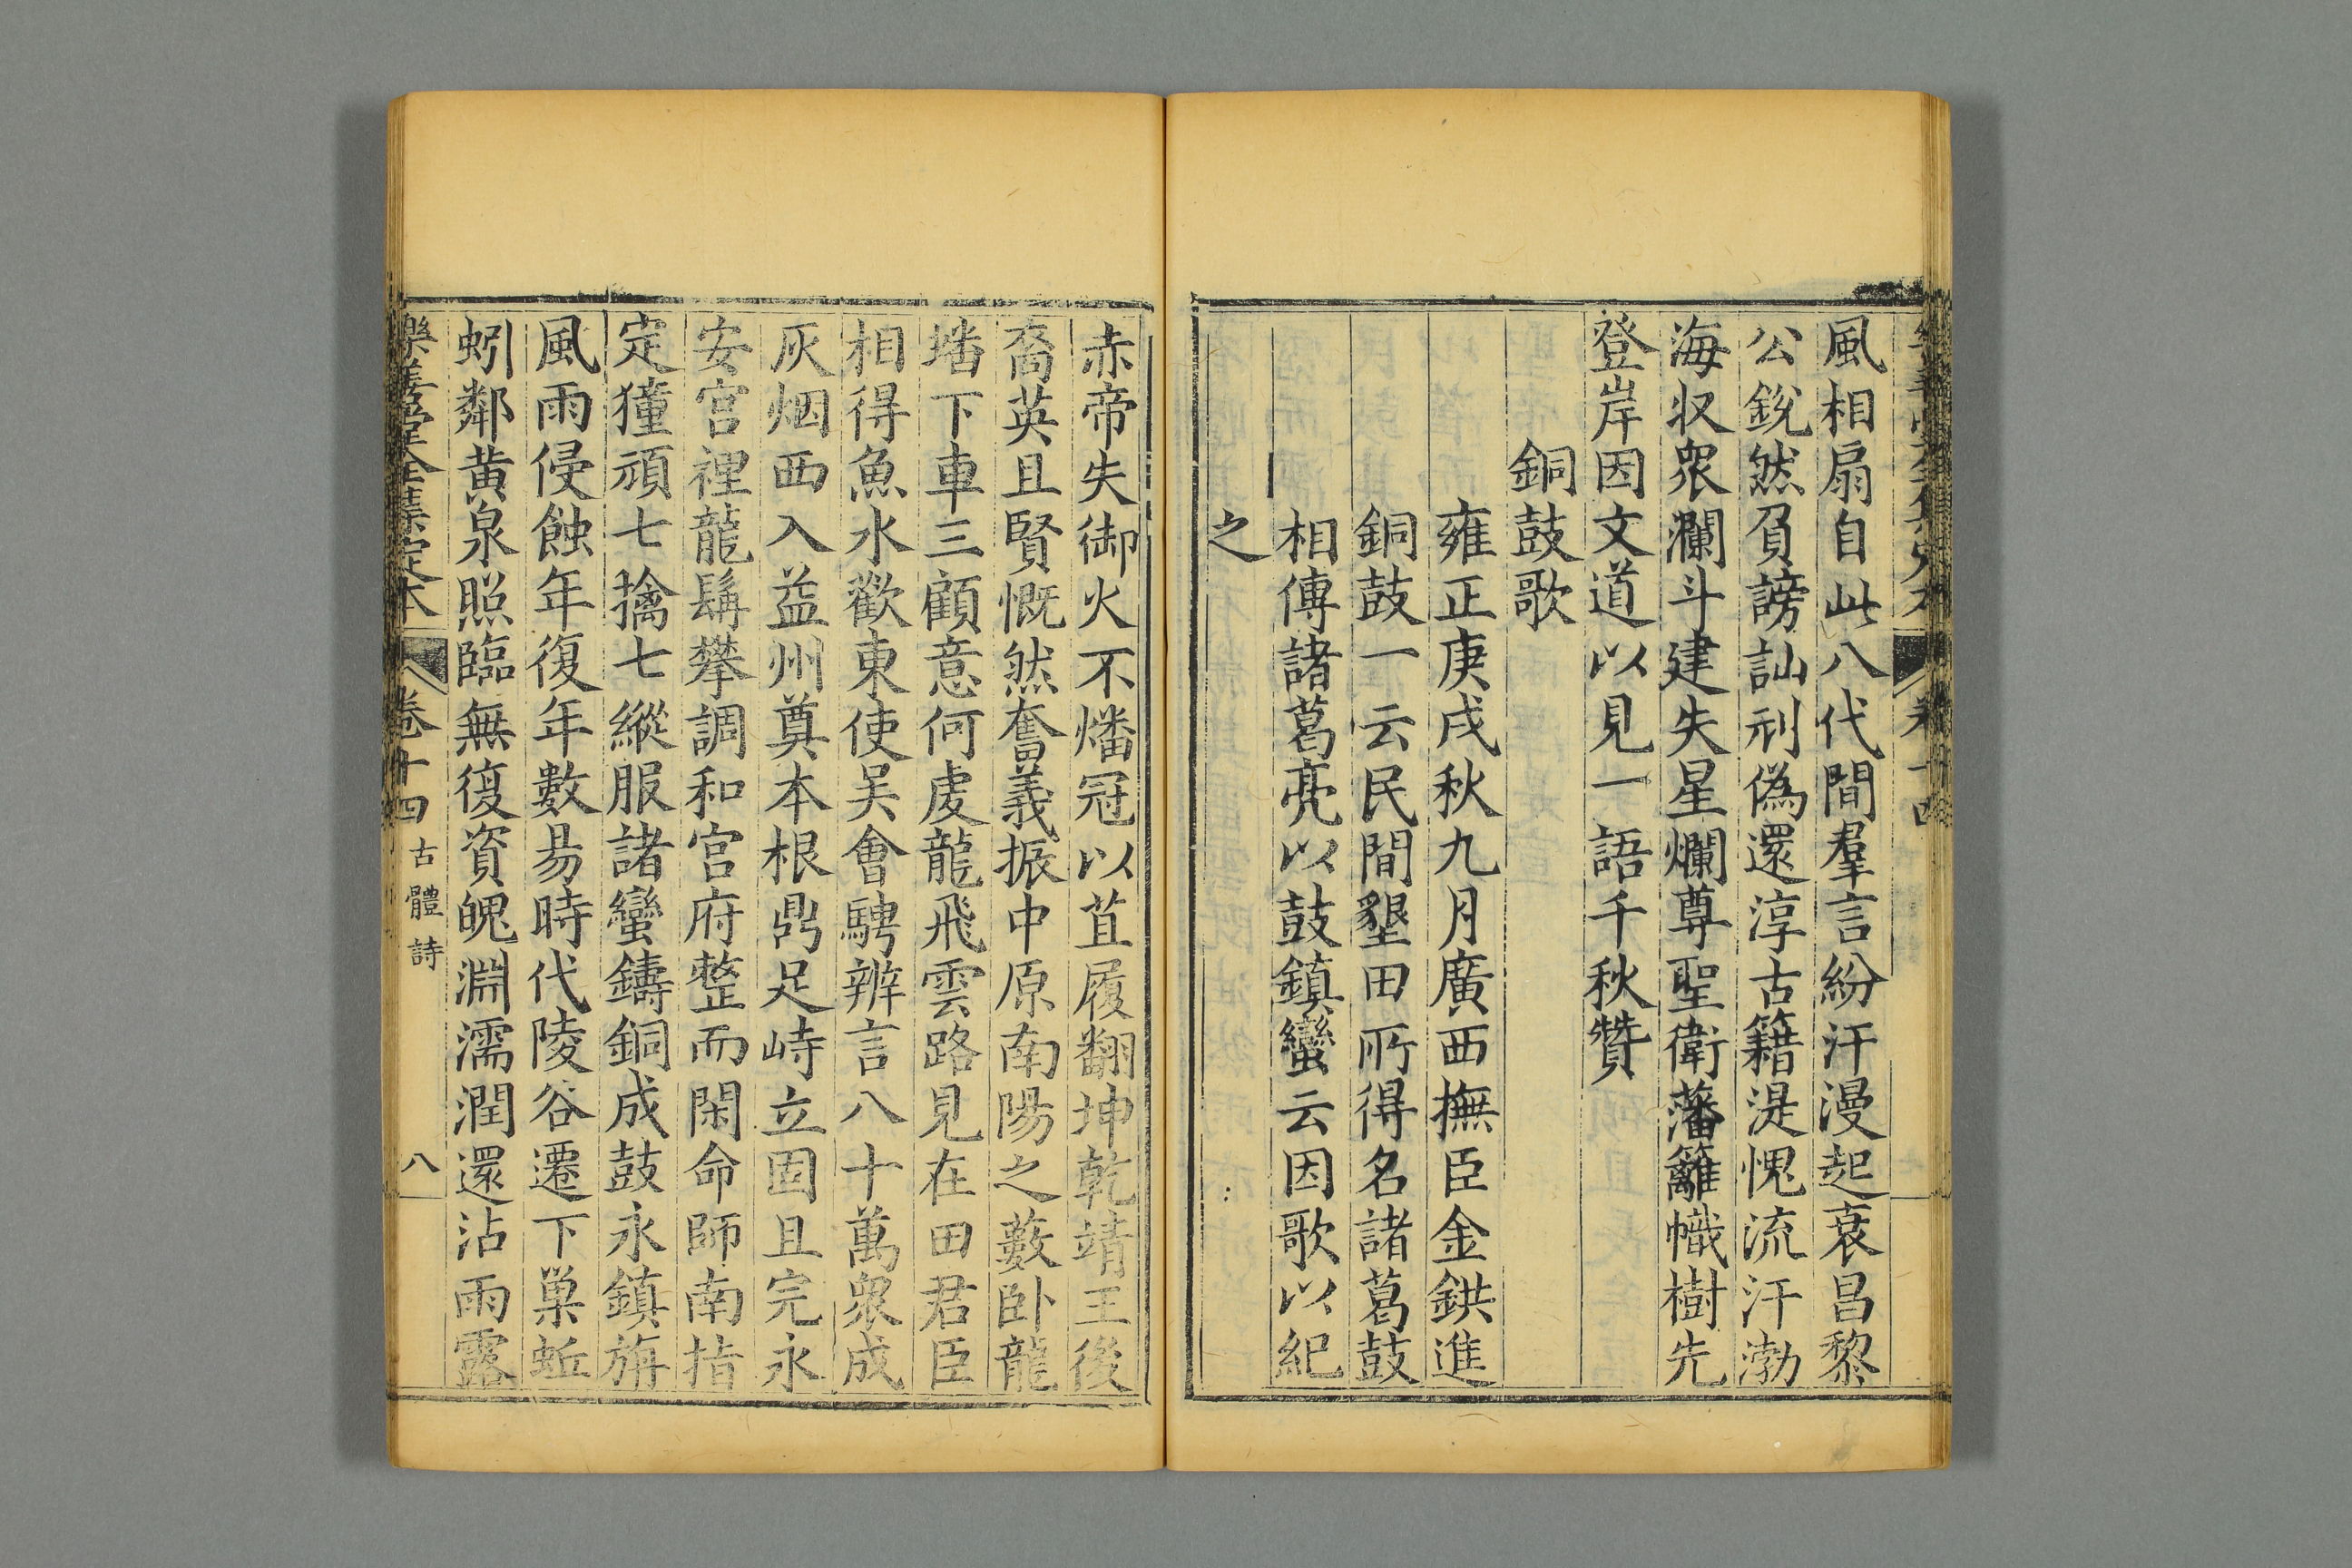 風相扇自此八代間羣言紛汗漫起衰昌黎
公銳然負謗訕刋偽還淳古籍湜愧流汗渤
海収衆瀾斗建失星爛尊聖衛藩籬幟樹先
登岸因文道以見一語千秋贊
銅鼓歌
雍正庚戌秋九月廣西撫臣金鉷進
銅鼓一云民間墾田所得名諸葛鼓
相傳諸葛亮以鼓鎮蠻云因歌以紀
之
赤帝失御火不燔冠以苴履翻坤乾靖王後
裔英且賢慨然奮義振中原南陽之藪卧龍
墦下車三顧意何虔龍飛雲路見在田君臣
相得魚水歡東使吴會騁辨言八十萬衆成
灰烟西入益州奠本根鼎足峙立固且完永
安宮裡龍髯攀調和宮府整而閑命師南指
定獞頑七擒七縱服諸蠻鑄銅成鼓永鎮旃
風雨侵蝕年復年數易時代陵谷遷下巢蚯
蚓鄰黄泉照臨無復資魄淵濡潤還沾雨露
樂善堂全集定本 卷十四 古體詩 八